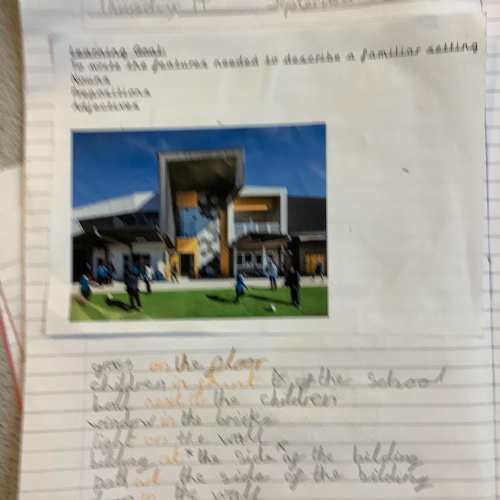 Thursday 1
Learning Goal:
To write the features needed to describe a familiar setting
Nouns
Prepositions
Adjectives
on the floor
children in of the school
ball next to the children
window in the bricks
light on the wall
at the side of the bilding
at the side of the bilding
in the wall